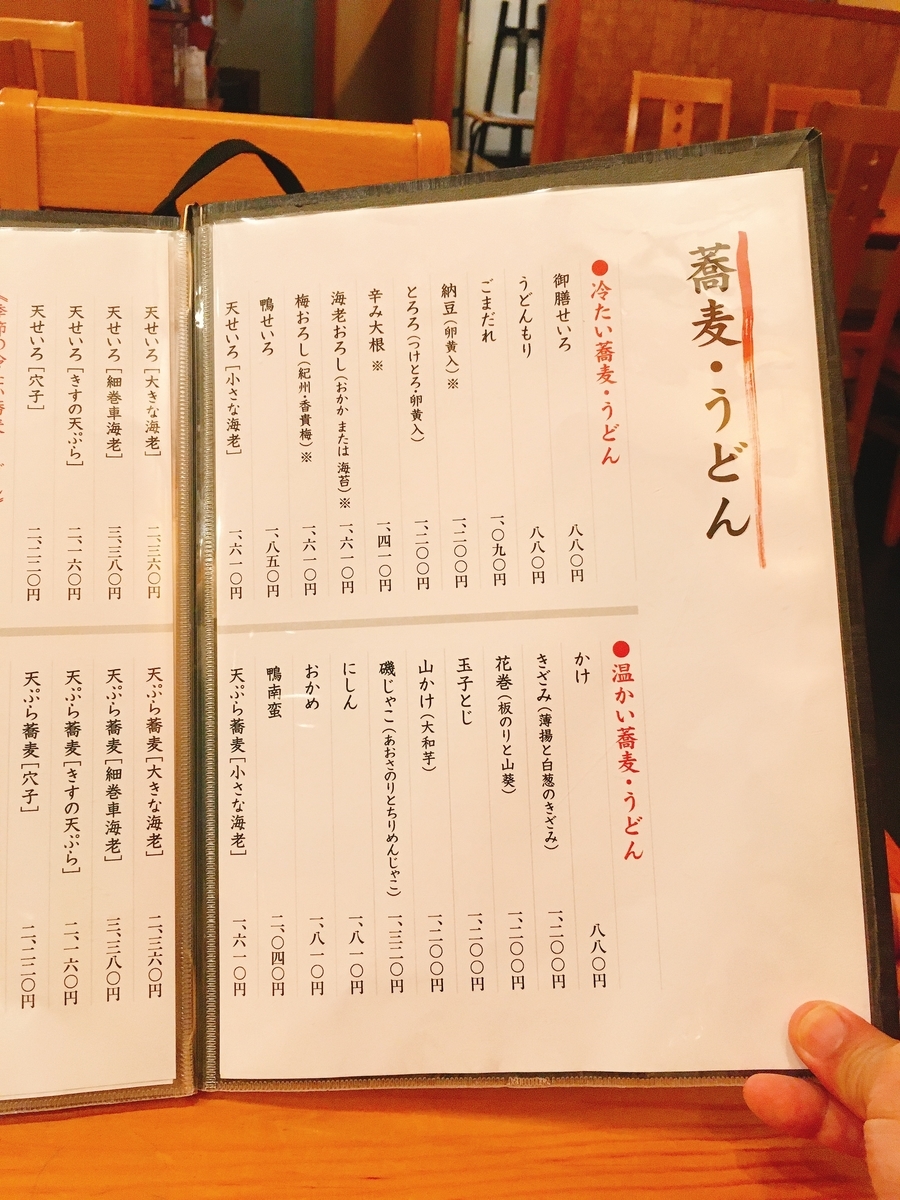 蕎麦・うどん
●冷たい蕎麦・うどん
御膳せいろ 八八〇円
うどんもり 八八〇円
ごまだれ 一、〇九〇円
納豆(卵黄入)※ 一、二〇〇円
とろろ(つけとろ・卵黄入) 一、二〇〇円
辛み大根※ 一、四一〇円
海老おろし(おかか または 海苔)※ 一、六一〇円
梅おろし(紀州・香貴梅)※ 一、六一〇円
鴨せいろ 一、八五〇円
天せいろ[小さな海老] 一、六一〇円
●温かい蕎麦・うどん
かけ 八八〇円
きざみ(薄揚と白葱のきざみ) 一、二〇〇円
花巻(板のりと山葵) 一、二〇〇円
玉子とじ 一、二〇〇円
山かけ(大和芋) 一、二〇〇円
磯じゃこ(あおさのりとちりめんじゃこ) 一、三二〇円
にしん 一、八一〇円
おかめ 一、八一〇円
鴨南蛮 二、〇四〇円
天ぷら蕎麦[小さな海老] 一、六一〇円
天せいろ[大きな海老] 二、三六〇円
天せいろ[細巻車海老] 三、三八〇円
天せいろ[きすの天ぷら] 二、一六〇円
天せいろ[穴子] 二、二二〇円
天ぷら蕎麦[大きな海老] 二、三六〇円
天ぷら蕎麦[細巻車海老] 三、三八〇円
天ぷら蕎麦[きすの天ぷら] 二、一六〇円
天ぷら蕎麦[穴子] 二、二二〇円